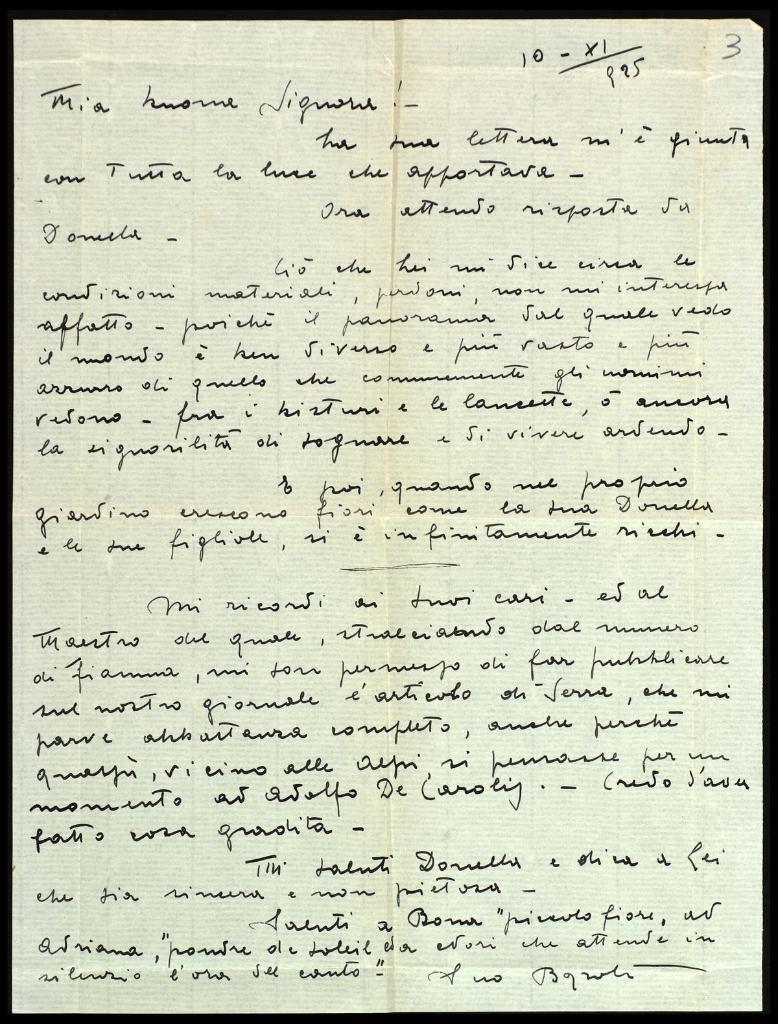 3
10 - XI
925
Mia buona Signora! -
La sua lettera m'è giunta
con Tutta la luce che apportava -
Ora attendo risposta da
Donella -
Ciò che Lei mi dice circa le
condizioni materiali, perdoni, non mi interessa
affatto - poichè il panorama dal quale vedo
il mondo è ben diverso e più vasto e più
azzurro di quello che comunemente gli uomini
vedono - fra i bisturi e le lancette, ò ancora
la signorilità di sognare e di vivere ardendo -
E poi, quando nel proprio
giardino crescono fiori come la sua Donella
e le sue figliole, si è infinitamente ricchi -
Mi ricordi ai suoi cari - ed al
Maestro del quale, stralciando dal numero
di Fiamma, mi son permesso di far pubblicare
sul nostro giornale l'articolo di Serra, che mi
parve abbastanza completo, anche perchè
quassù, vicino alle Alpi, si pensasse per un
momento ad Adolfo De Carolis. - Credo d'aver
fatto cosa gradita -
Mi saluti Donella e dica a Lei
che sia sincera e non pietosa -
Saluti a Bona "piccolo fiore, ad
Adriana, "poudre de soleil che attende in
silenzio l'ora del canto" - Suo